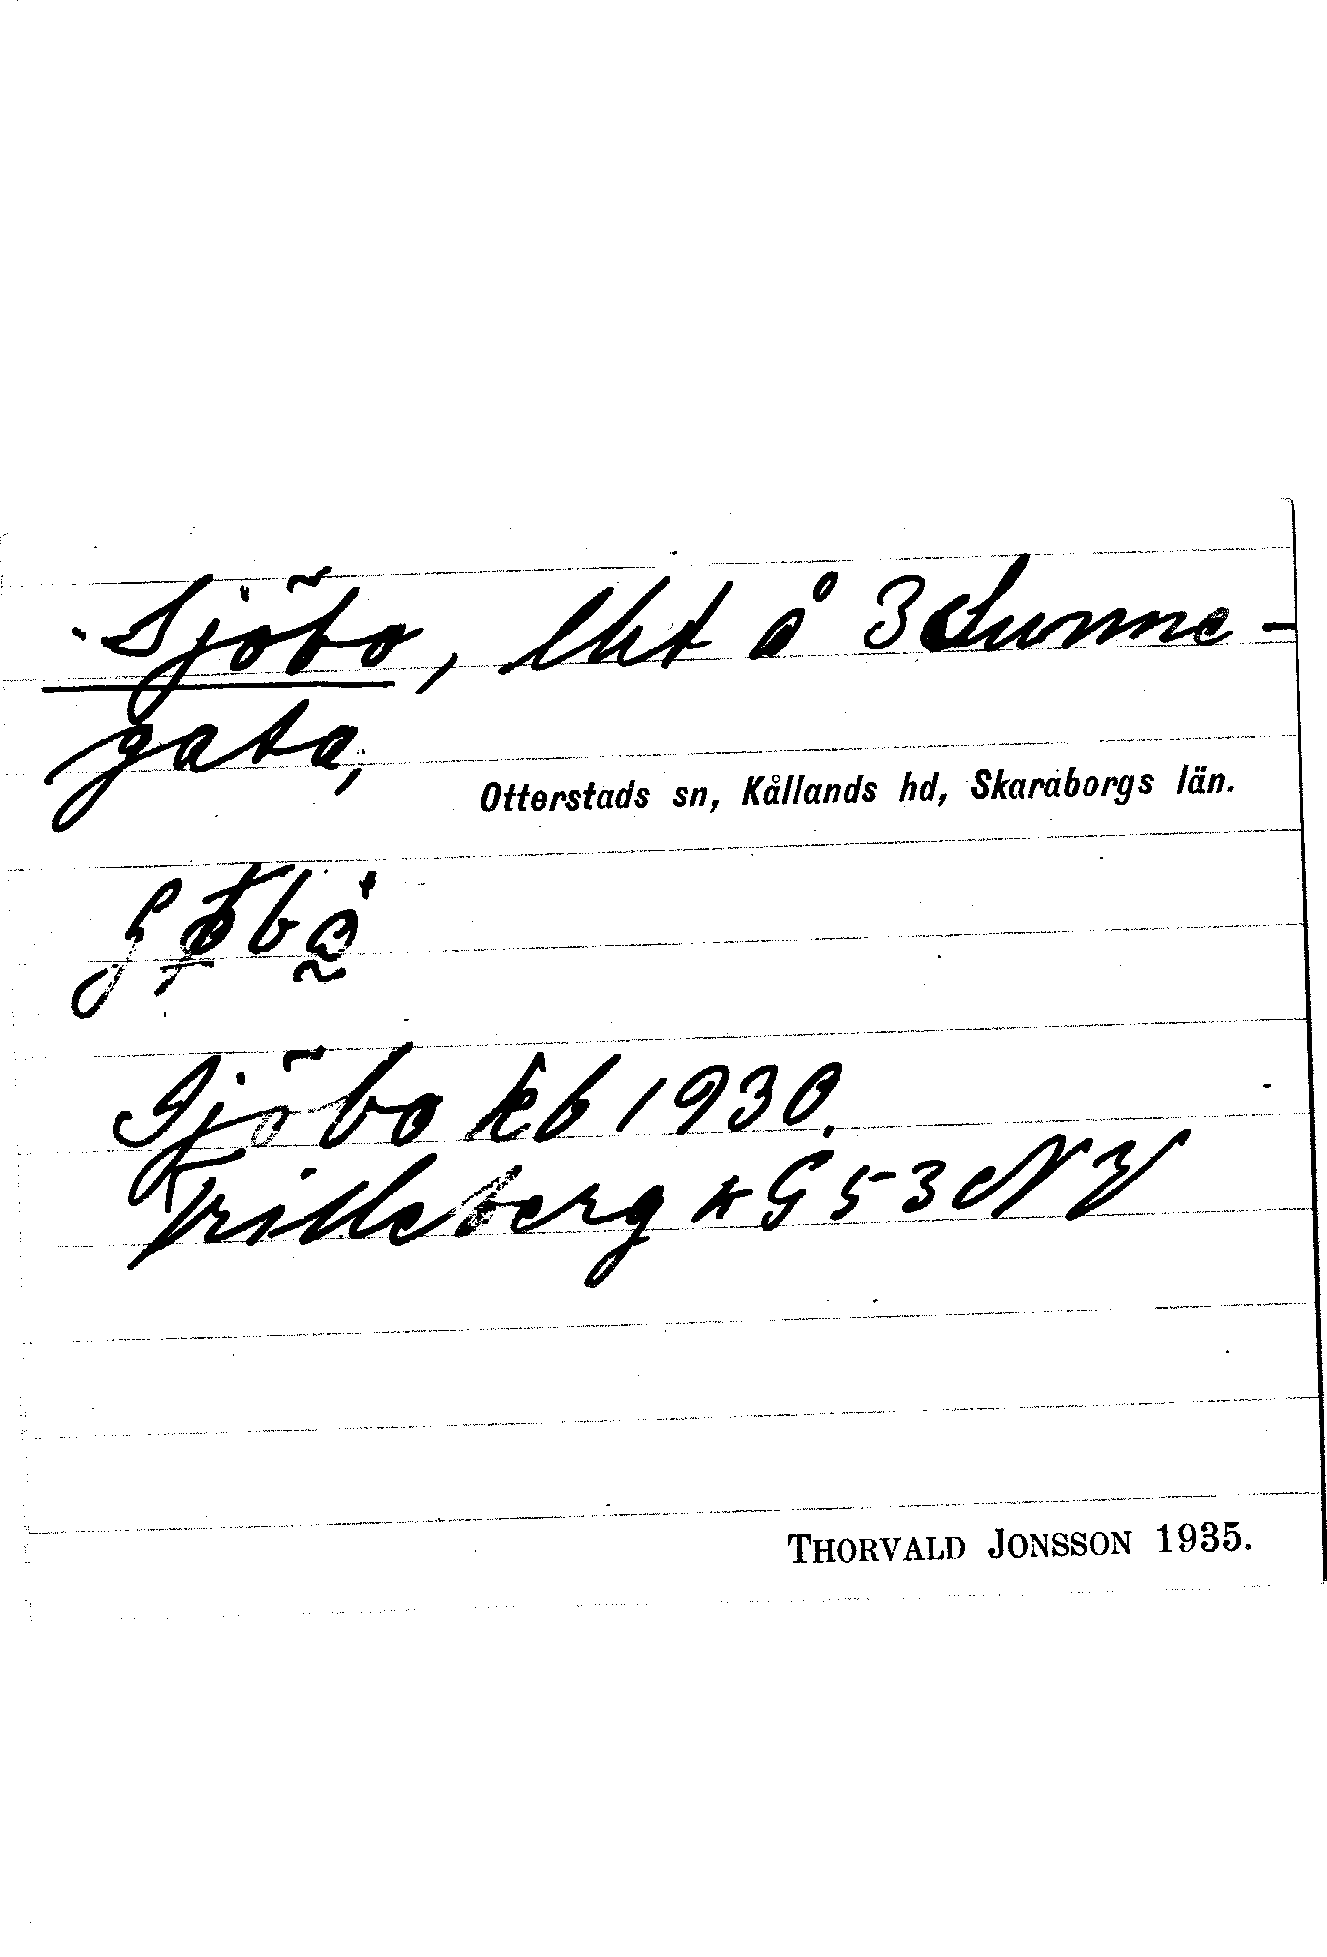 Sjöbo, lht å 3 Sunne-
gata,
Otterstads sn, Kållands hd, Skaraborgs län.
Sjöbo kb 1930.
Trilleberg k G 53 NV
THORVALD JONSSON 1935.